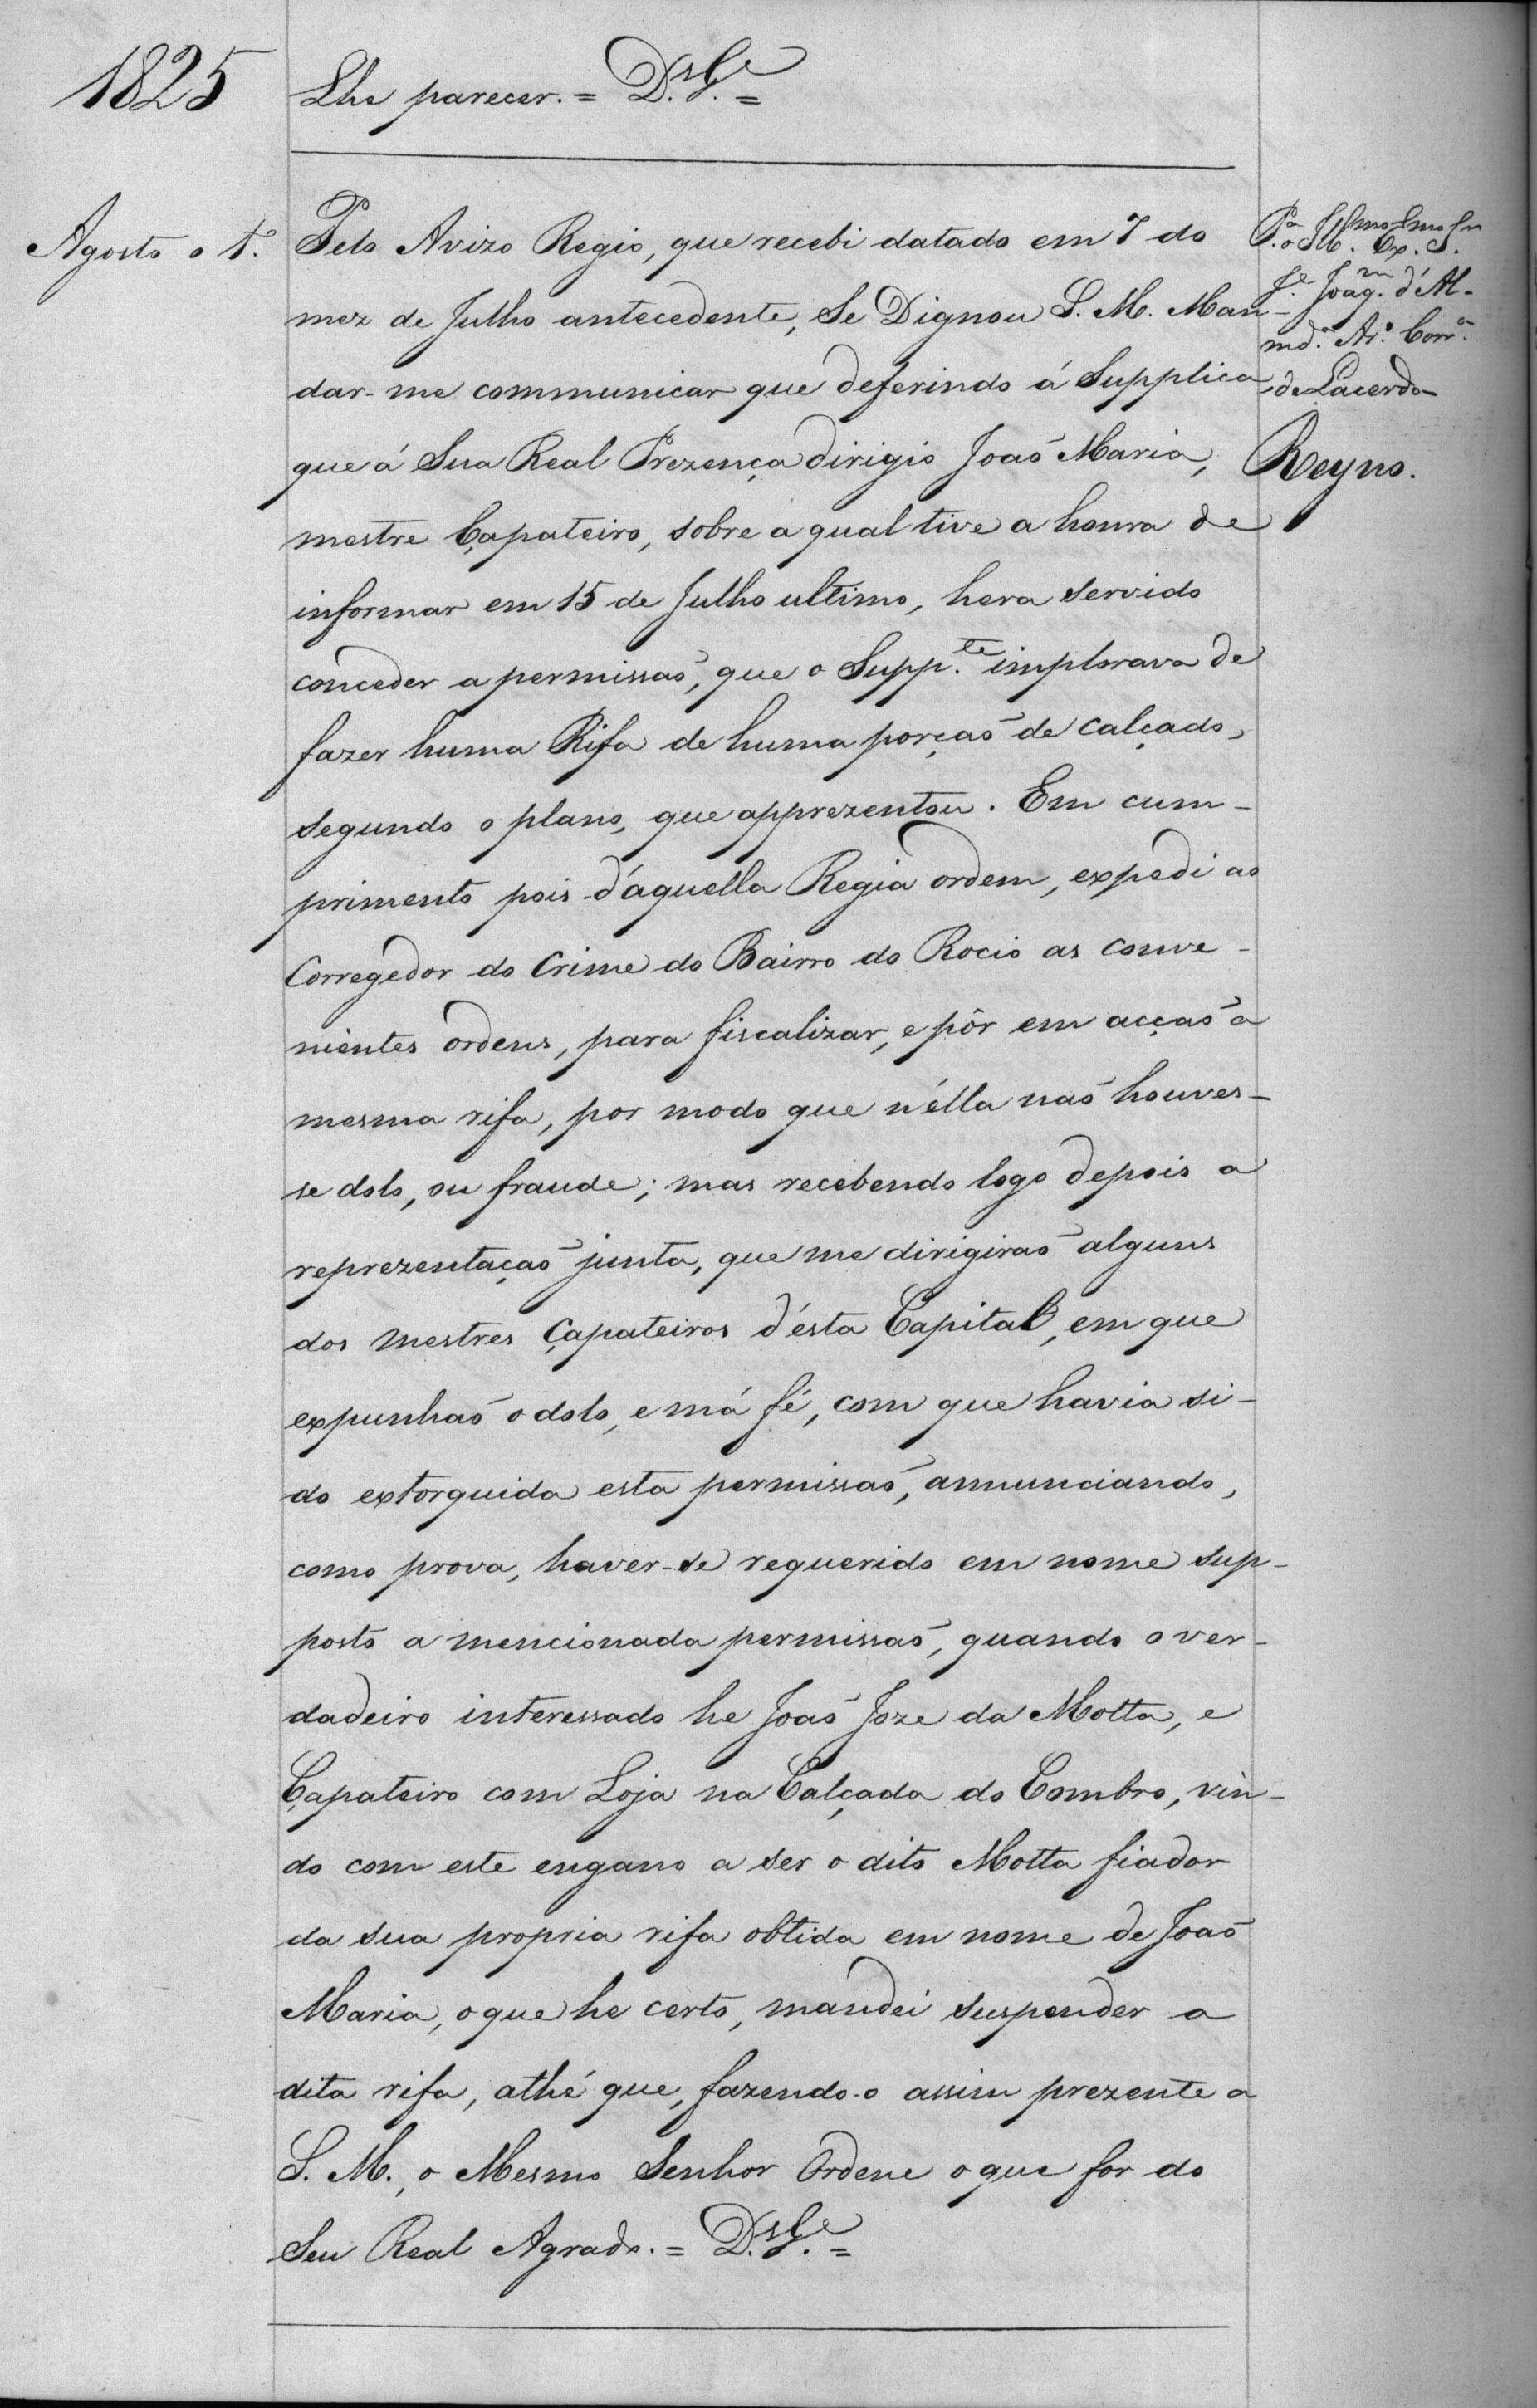 1825
Lhe parecer. = D.s G.e =
Agosto o 1.º
Pelo Avizo Regio, que recebi datado em 7 do
mez de Julho antecedente, Se Dignou S. M. Man-
dar-me communicar que deferindo á Supplica
que á Sua Real Prezença dirigio Joaõ Maria,
mestre Çapateiro, sobre a qual tive a honra de
informar em 15 de Julho ultimo, hera servido
conceder a permissaõ, que o Supp.te implorava de
fazer huma Rifa de huma porçaõ de calçado,
segundo o plano, que apprezentou. Em cum-
primento pois d'aquella Regia ordem, expedi ao
Corregedor do Crime do Bairro do Rocio as conve-
nientes ordens, para fiscalizar, e pôr em acçaõ a
mesma rifa, por modo que n'élla naõ houves-
se dolo, ou fraude; mas recebendo logo depois a
reprezentaçaõ junta, que me dirigiraõ alguns
dos mestres Çapateiros d'ésta Capital, em que
expunhaõ o dolo, e má fé, com que havia si-
do extorquida esta permissaõ, annunciando,
como prova, haver-se requerido em nome sup-
posto a mencionada permissaõ, quando o ver-
dadeiro interessado he Joaõ Joze da Motta, e
Çapateiro com Loja na Calçada do Combro, vin-
do com este engano a ser o dito Motta fiador
da sua propria rifa obtida em nome de Joaõ
Maria, o que he certo, mandei suspender a
dita rifa, athé que, fazendo-o assim prezente a
S. M., o Mesmo Senhor Ordene o que for do
Seu Real Agrado. = D.s G.e =
P.a o Ill.mo Ex.mo Sn.r
J.e Joaq.m d'Al-
md.a Ar.o Corr.a
de Lacerda
Reyno.